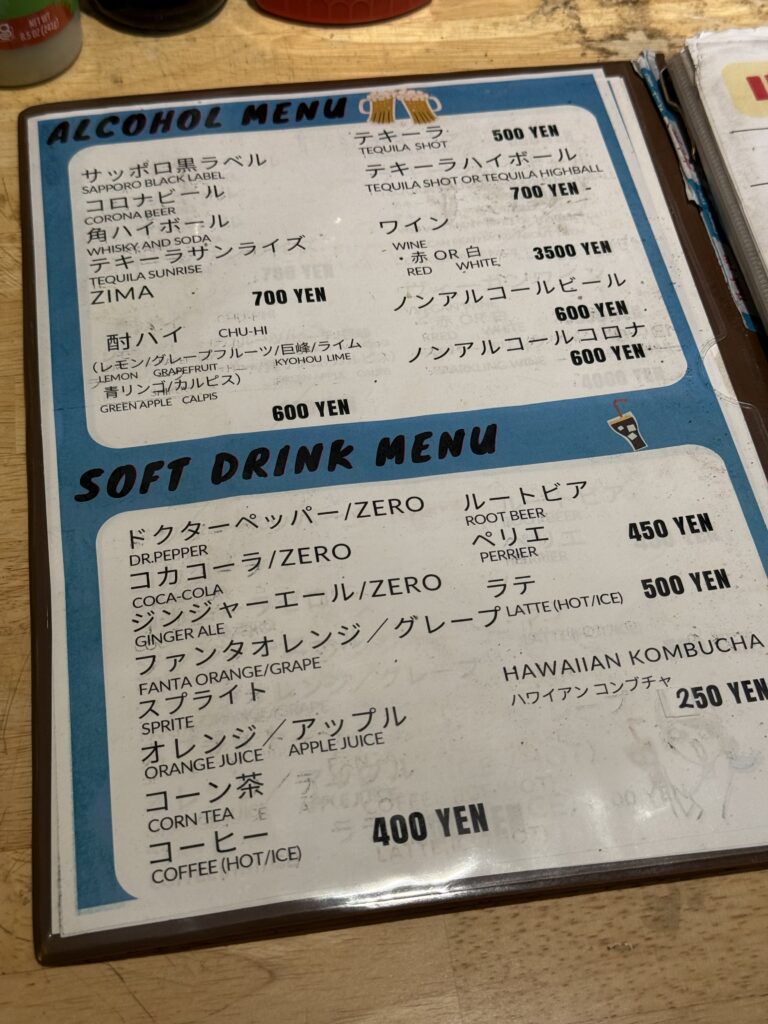 NET WT
8.5 OZ (241g)
ALCOHOL MENU
サッポロ黒ラベル
SAPPORO BLACK LABEL
コロナビール
CORONA BEER
角ハイボール
WHISKY AND SODA
テキーラサンライズ
TEQUILA SUNRISE
ZIMA
700 YEN
酎バイ CHU-HI
(レモン/グレープフルーツ/巨峰/ライム
LEMON GRAPEFRUIT KYOHOU LIME
青リンゴ/カルピス)
GREEN APPLE CALPIS
600 YEN
テキーラ 500 YEN
TEQUILA SHOT
テキーラハイボール
TEQUILA SHOT OR TEQUILA HIGHBALL
700 YEN
ワイン
WINE
・赤 OR 白 3500 YEN
RED WHITE
ノンアルコールビール
600 YEN
ノンアルコールコロナ
600 YEN
SOFT DRINK MENU
ドクターペッパー/ZERO
DR.PEPPER
コカコーラ/ZERO
COCA-COLA
ジンジャーエール/ZERO
GINGER ALE
ファンタオレンジ/グレープ
FANTA ORANGE/GRAPE
スプライト
SPRITE
オレンジ/アップル
ORANGE JUICE APPLE JUICE
コーン茶
CORN TEA
コーヒー
COFFEE (HOT/ICE)
400 YEN
ルートビア
ROOT BEER
ペリエ 450 YEN
PERRIER
ラテ 500 YEN
LATTE (HOT/ICE)
HAWAIIAN KOMBUCHA
ハワイアン コンブチャ
250 YEN